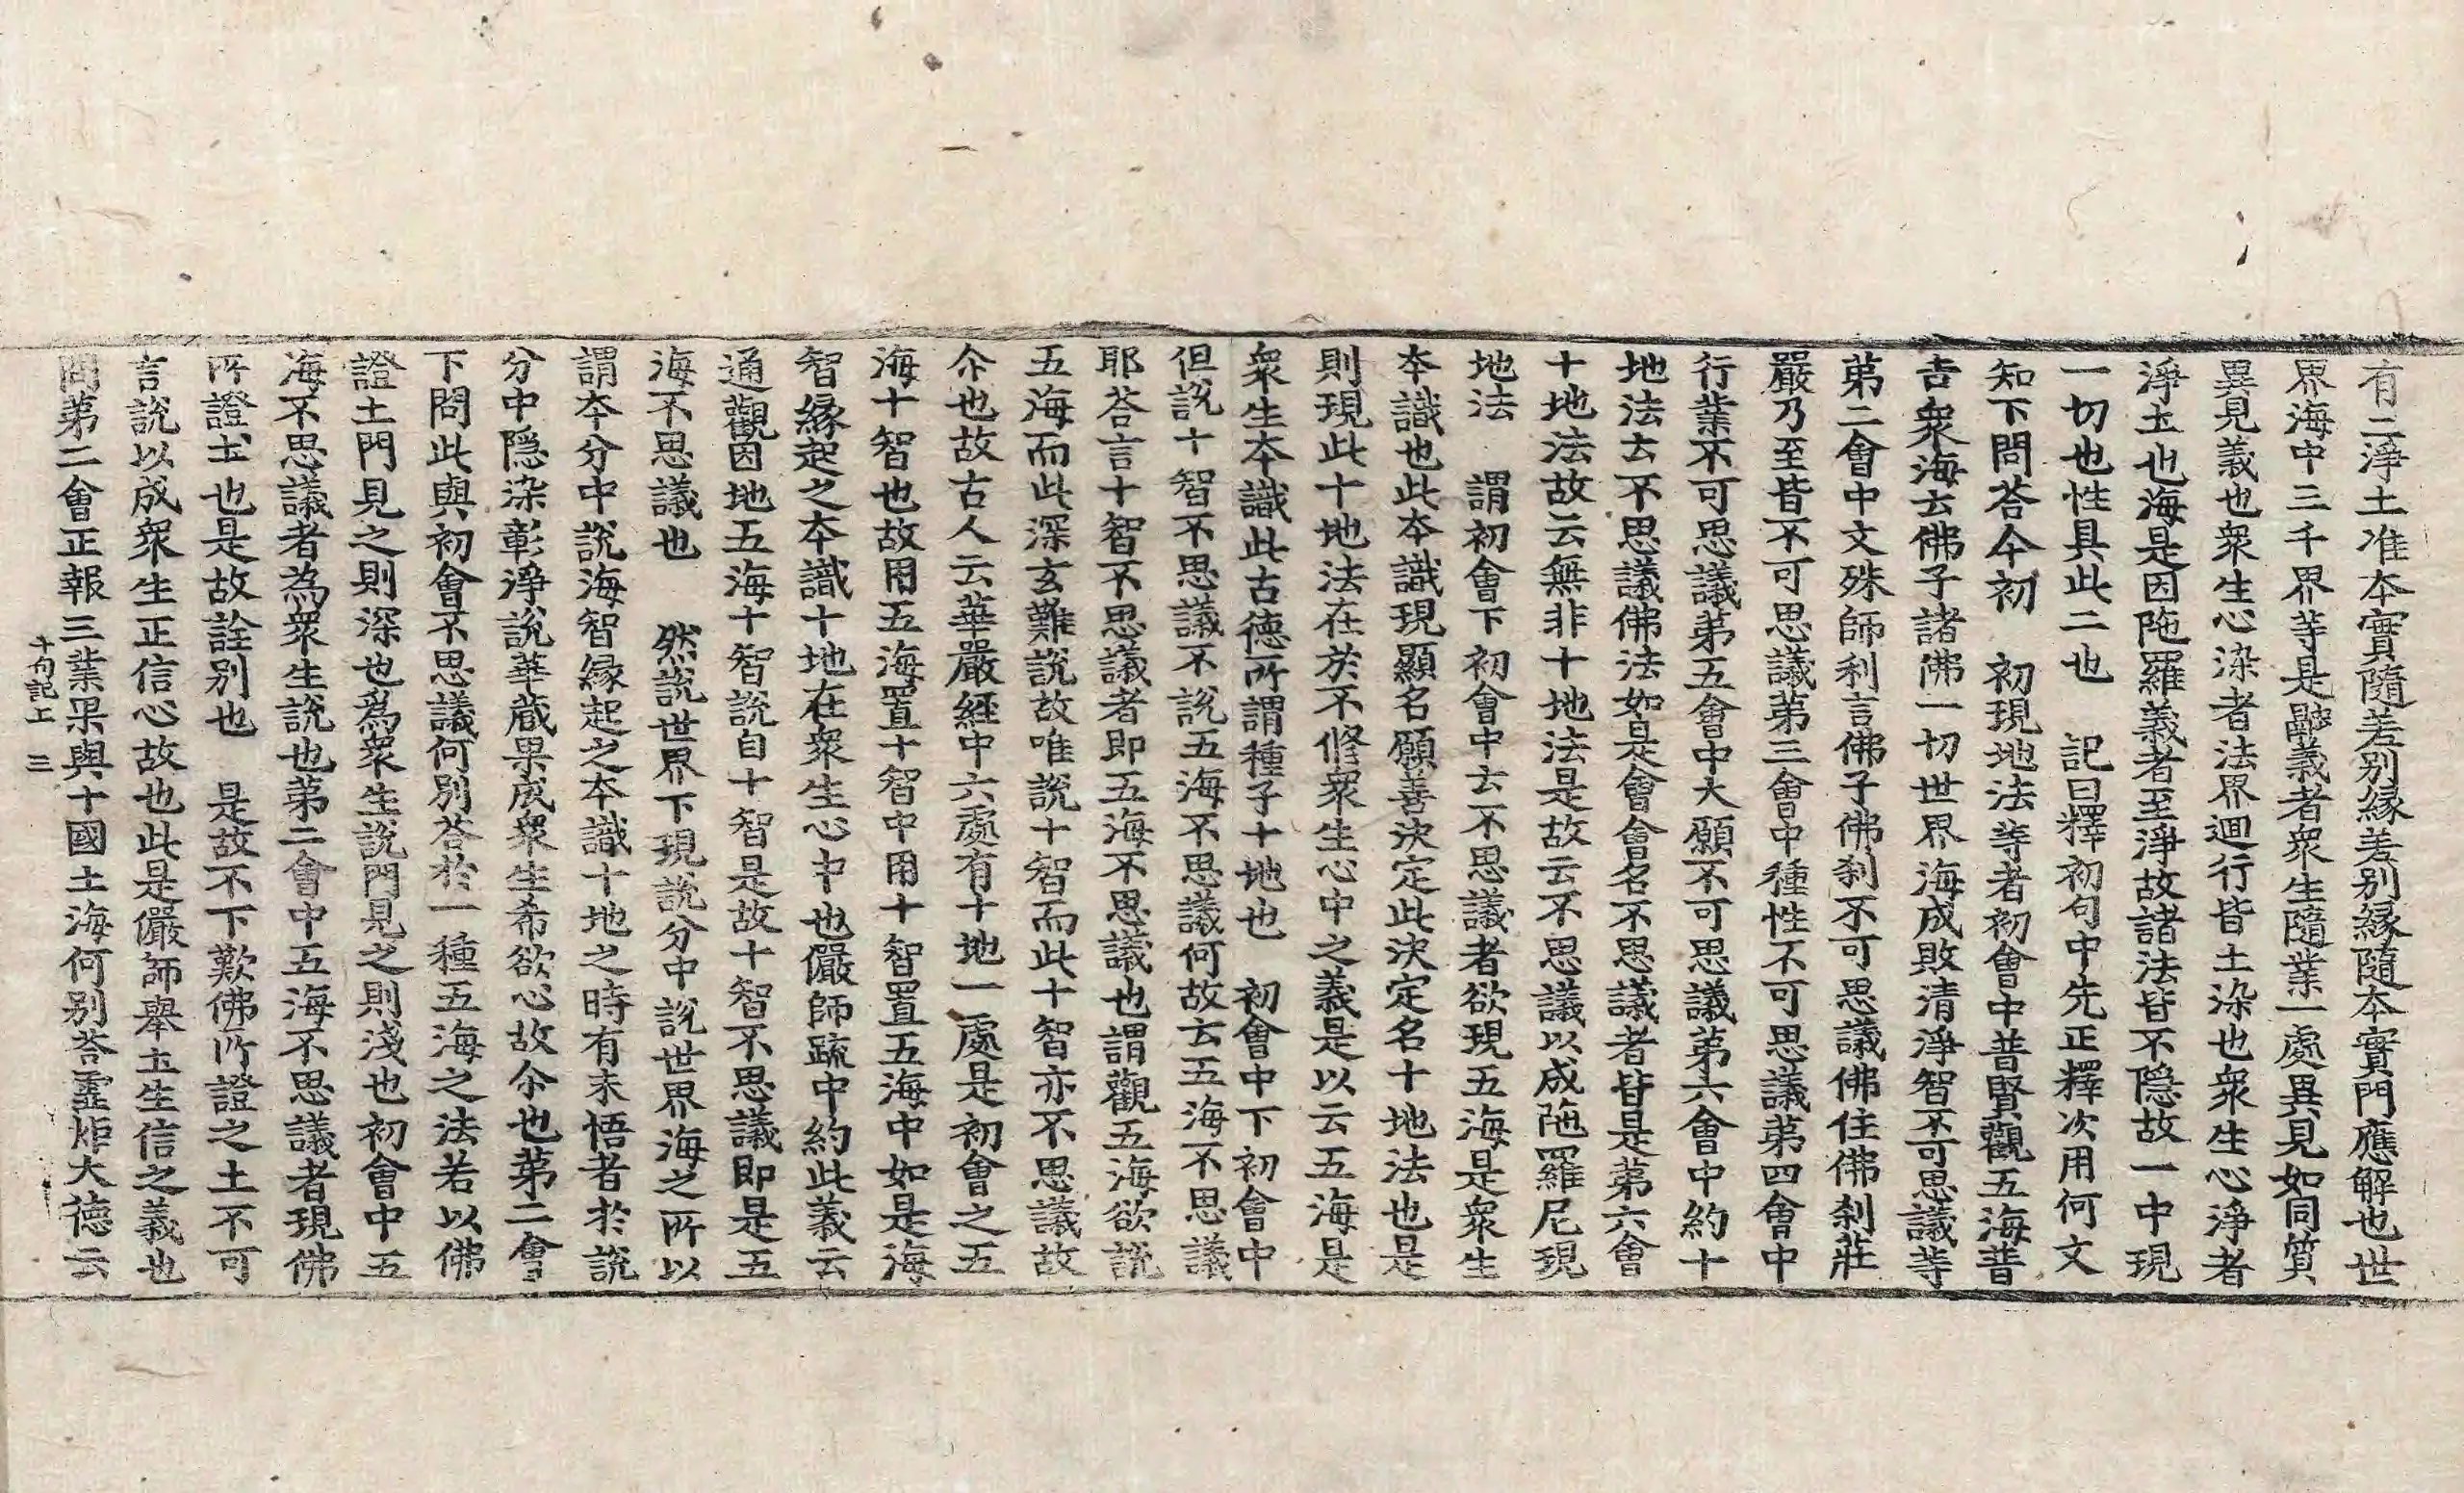 有二淨土准本實隨差別緣差別緣隨本實門應解也世
界海中三千界等是齶義者衆生隨業一處異見如同質
異見義也衆生心染者法界迴行皆土染也衆生心淨者
淨土也海是因陁羅義者至淨故諸法皆不隱故一中現
一切也性具此二也　記曰釋初句中先正釋次用何文
知下問荅今初　初現地法等者初會中普賢觀五海普
告衆海云佛子諸佛一切世界海成敗清淨智不可思議等
第二會中文殊師利言佛子佛刹不可思議佛住佛刹莊
嚴乃至皆不可思議第三會中種性不可思議第四會中
行業不可思議第五會中大願不可思議第六會中約十
地法云不思議佛法如是會會名不思議者皆是第六會
十地法故云無非十地法是故云不思議以成陁羅尼現
地法　謂初會下初會中云不思議者欲現五海是衆生
本識也此本識現顯名願善決定此決定名十地法也是
則現此十地法在於不修衆生心中之義是以云五海是
衆生本識此古德所謂種子十地也　初會中下初會中
但說十智不思議不說五海不思議何故云五海不思議
耶荅言十智不思議者即五海不思議也謂觀五海欲說
五海而此深玄難說故唯說十智而此十智亦不思議故
尒也故古人云華嚴經中六處有十地一處是初會之五
海十智也故用五海置十智中用十智置五海中如是海
智緣起之本識十地在衆生心中也儼師疏中約此義云
通觀因地五海十智說自十智是故十智不思議即是五
海不思議也　然說世界下現說分中說世界海之所以
謂本分中說海智緣起之本識十地之時有未悟者於說
分中隱染彰淨說華藏果成衆生希欲心故尒也第二會
下問此與初會不思議何別荅於一種五海之法若以佛
證土門見之則深也爲衆生說門見之則淺也初會中五
海不思議者為衆生說也第二會中五海不思議者現佛
所證土也是故詮別也　是故不下歎佛所證之土不可
言說以成衆生正信心故也此是儼師舉土生信之義也
問第二會正報三業果與十國土海何別荅霊炬大德云
十句記上　三